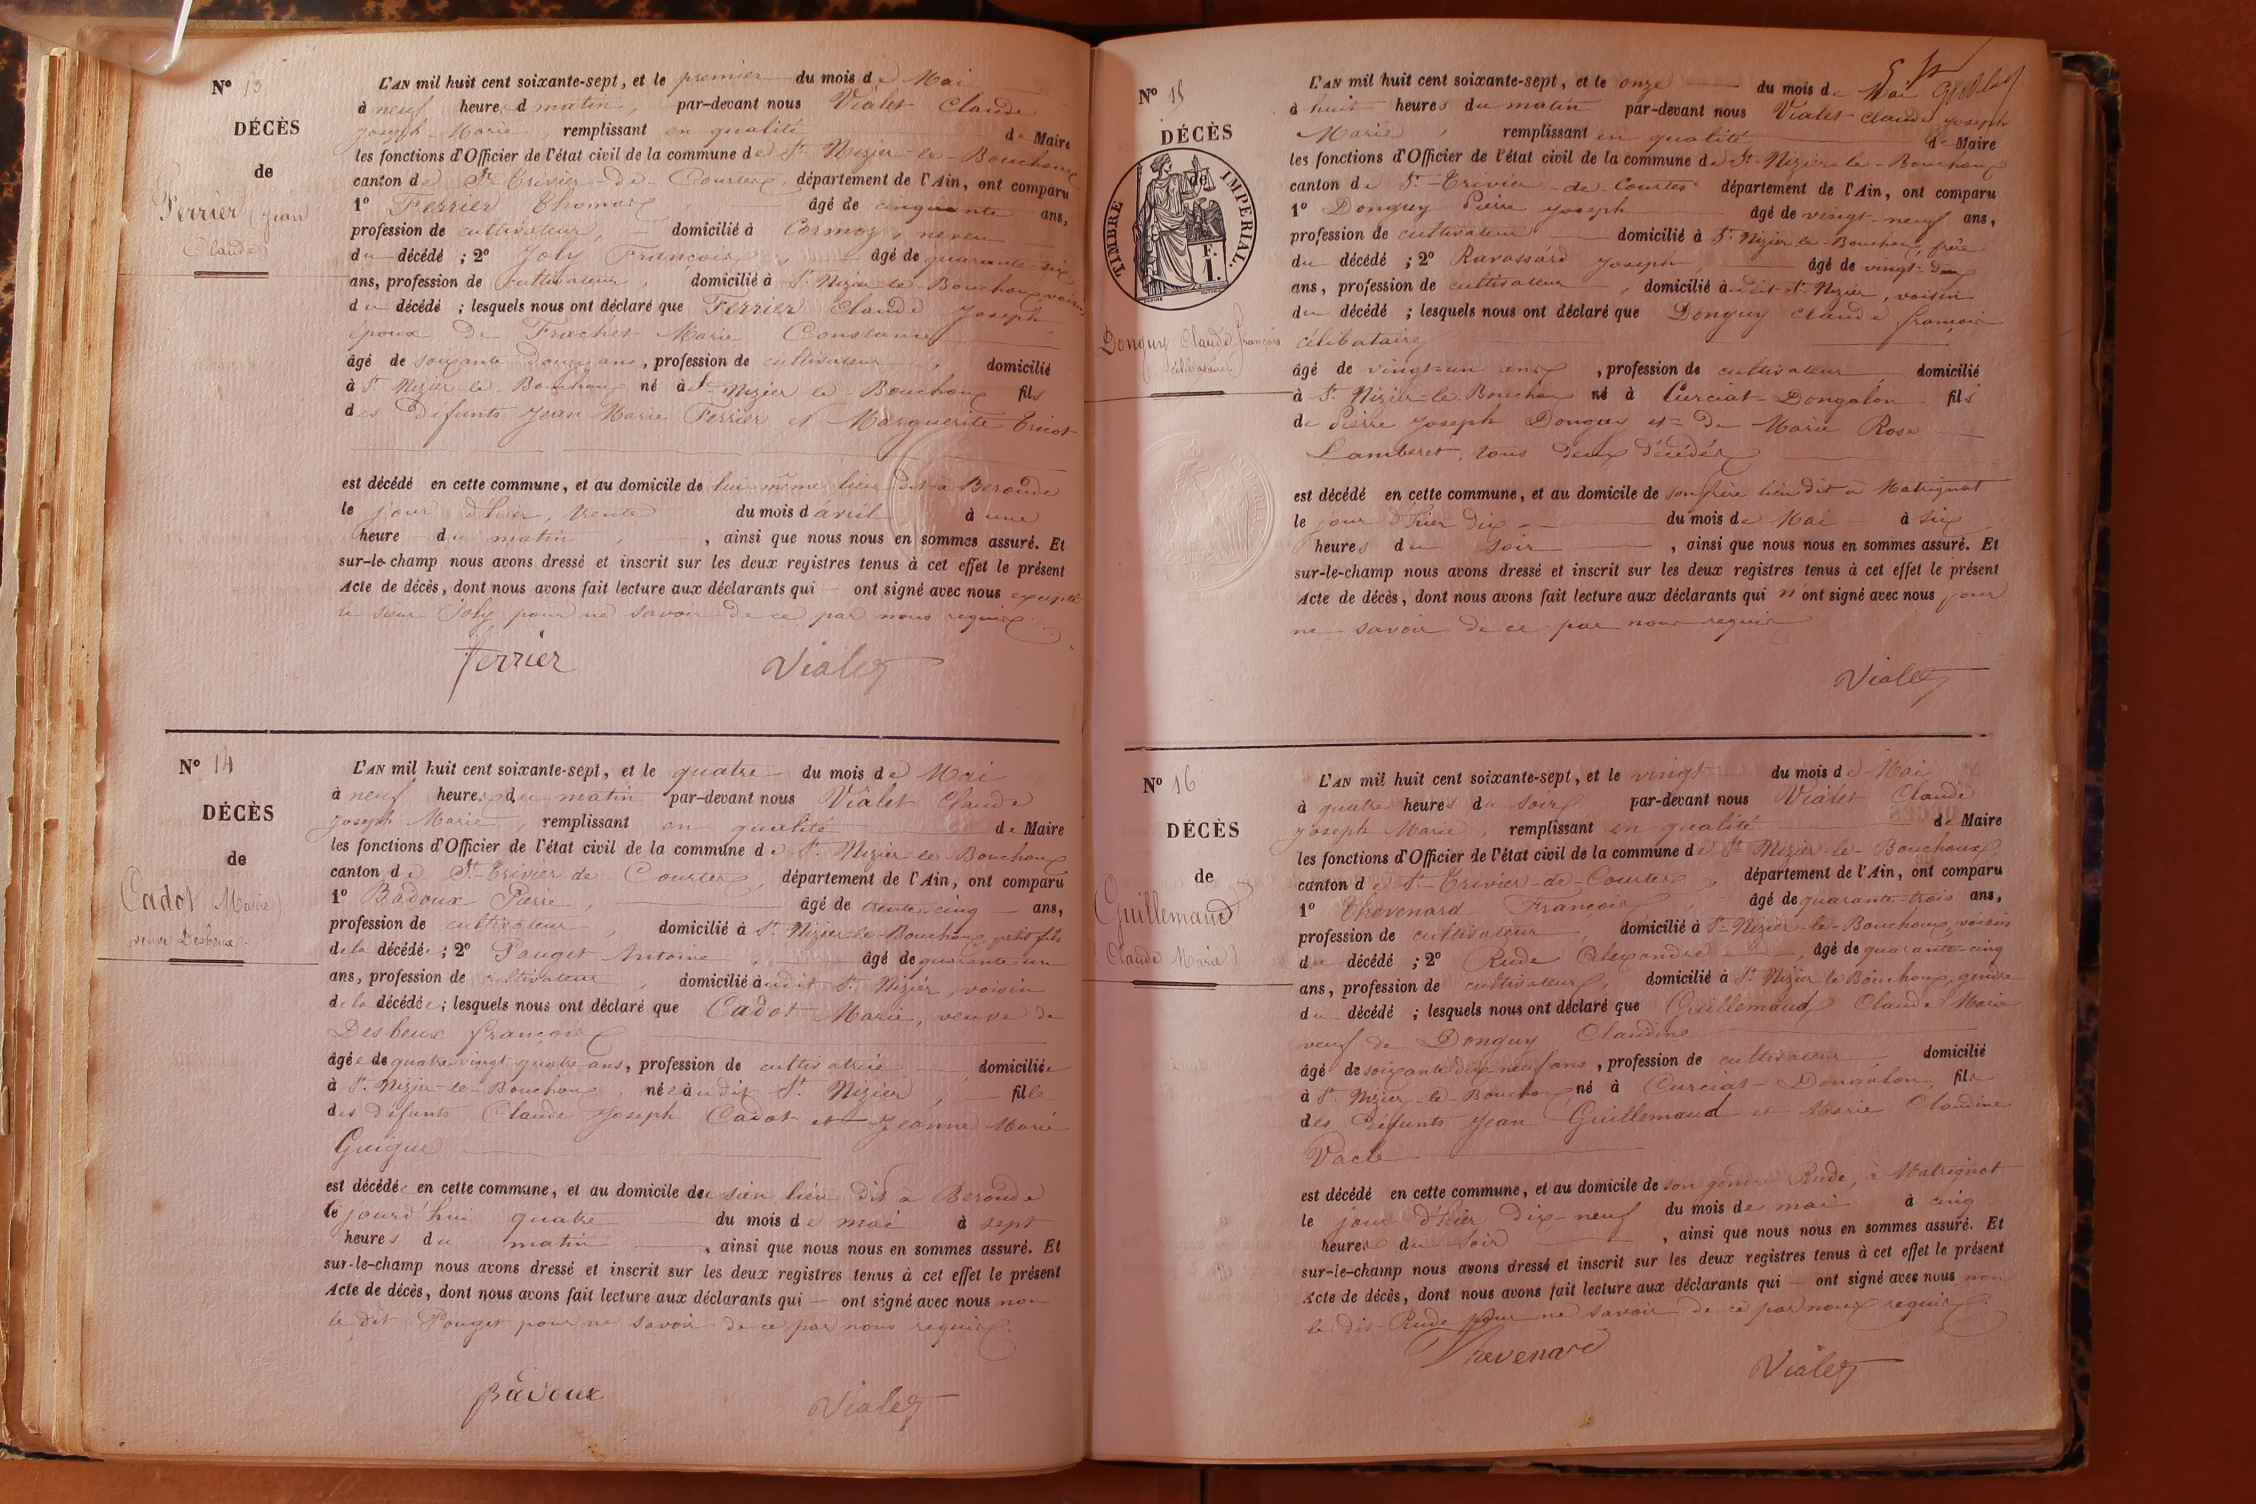 Nº 13
DÉCÈS
de
Ferrier Jean
Claude
L'AN mil huit cent soixante-sept, et le premier du mois de Mai
à neuf heures d matin, par-devant nous Vialet Claude
Joseph Marie, remplissant en qualité de Maire
les fonctions d'Officier de l'état civil de la commune de St Nizier-le-Bouchoux
canton de St Trivier-de-Courtes, département de l'Ain, ont comparu
1º Ferrier Thomas âgé de cinquante ans,
profession de cultivateur, domicilié à Cormoz, neveu
du décédé ; 2º Joly François, âgé de quarante-six
ans, profession de cultivateur, domicilié à St Nizier-le-Bouchoux, voisin
du décédé ; lesquels nous ont déclaré que Ferrier Claude Joseph
époux de Frachet Marie Constance
âgé de soixante douze ans, profession de cultivateur, domicilié
à St Nizier-le-Bouchoux né à St Nizier le Bouchoux fils
des défunts Jean Marie Ferrier et Marguerite
est décédé en cette commune, et au domicile de lui-même lieu dit à Beronde
le jour d'hier, trente du mois d'avril à une
heure du matin, ainsi que nous nous en sommes assuré. Et
sur-le-champ nous avons dressé et inscrit sur les deux registres tenus à cet effet le présent
Acte de décès, dont nous avons fait lecture aux déclarants qui — ont signé avec nous excepté
le sieur Joly pour ne savoir de ce par nous requis
Ferrier Vialet
Nº 14
DÉCÈS
de
Cadot Marie
veuve Desbeux
L'AN mil huit cent soixante-sept, et le quatre du mois de Mai
à neuf heures du matin par-devant nous Vialet Claude
Joseph Marie, remplissant en qualité de Maire
les fonctions d'Officier de l'état civil de la commune de St Nizier-le-Bouchoux
canton de St Trivier de Courtes, département de l'Ain, ont comparu
1º Badoux Pierre, âgé de trente cinq ans,
profession de cultivateur, domicilié à St Nizier-le-Bouchoux, petit fils
de la décédée ; 2º Pouget Antoine, âgé de quarante-un
ans, profession de cultivateur, domicilié àudit St Nizier, voisin
de la décédée ; lesquels nous ont déclaré que Cadot Marie, veuve de
Desbeux François
âgée de quatre vingt quatre ans, profession de cultivatrice, domiciliée
à St Nizier-le-Bouchoux, née àudit St Nizier, fille
des défunts Claude Joseph Cadot et Jeanne Marie
Guigue
est décédée en cette commune, et au domicile du sien lieu dit à Beronde
le jourd'hui quatre du mois de mai à sept
heures du matin, ainsi que nous nous en sommes assuré. Et
sur-le-champ nous avons dressé et inscrit sur les deux registres tenus à cet effet le présent
Acte de décès, dont nous avons fait lecture aux déclarants qui — ont signé avec nous non
le dit Pouget pour ne savoir de ce par nous requis
Badoux Vialet
Nº 15
DÉCÈS
de
TIMBRE IMPERIAL.
F.
1.
Donguy Claude françois
célibataire
L'AN mil huit cent soixante-sept, et le onze du mois de Mai
à huit heures du matin par-devant nous Vialet Claude Joseph
Marie, remplissant en qualité de Maire
les fonctions d'Officier de l'état civil de la commune de St Nizier-le-Bouchoux
canton de St Trivier-de-Courtes département de l'Ain, ont comparu
1º Donguy Pierre Joseph âgé de vingt-neuf ans,
profession de cultivateur domicilié à St Nizier le-Bouchoux, frère
du décédé ; 2º Ravassard Joseph, âgé de vingt-deux
ans, profession de cultivateur, domicilié àudit St Nizier, voisin
du décédé ; lesquels nous ont déclaré que Donguy Claude françois
célibataire
âgé de vingt-un ans, profession de cultivateur domicilié
à St Nizier-le-Bouchoux né à Curciat-Dongalon fils
de Pierre Joseph Donguy et de Marie Rose
Lamberet, tous deux décédés
est décédé en cette commune, et au domicile de son frère lieu dit à Matrignat
le jour d'hier dix du mois de Mai à six
heures du soir, ainsi que nous nous en sommes assuré. Et
sur-le-champ nous avons dressé et inscrit sur les deux registres tenus à cet effet le présent
Acte de décès, dont nous avons fait lecture aux déclarants qui n'ont signé avec nous pour
ne savoir de ce par nous requis
Vialet
Nº 16
DÉCÈS
de
Guillemaud
Claude Marie
L'AN mil huit cent soixante-sept, et le vingt du mois de Mai
à quatre heures du soir par-devant nous Vialet Claude
Joseph Marie, remplissant en qualité de Maire
les fonctions d'Officier de l'état civil de la commune de St Nizier-le-Bouchoux
canton de St Trivier-de-Courtes, département de l'Ain, ont comparu
1º Thevenard François, âgé de quarante-trois ans,
profession de cultivateur, domicilié à St Nizier-le-Bouchoux, voisin
du décédé ; 2º Rude Alexandre, âgé de quarante-cinq
ans, profession de cultivateur, domicilié à St Nizier le Bouchoux, gendre
du décédé ; lesquels nous ont déclaré que Guillemaud Claude Marie
veuf de Donguy Claudine
âgé de soixante dix neuf ans, profession de cultivateur domicilié
à St Nizier-le-Bouchoux né à Curciat-Dongalon, fils
des défunts Jean Guillemaud et Marie Claudine
Vacle
est décédé en cette commune, et au domicile de son gendre Rude, à Matrignat
le jour d'hier dix-neuf du mois de mai à cinq
heures du soir, ainsi que nous nous en sommes assuré. Et
sur-le-champ nous avons dressé et inscrit sur les deux registres tenus à cet effet le présent
Acte de décès, dont nous avons fait lecture aux déclarants qui — ont signé avec nous non
le dit Rude pour ne savoir de ce par nous requis
Thevenard Vialet